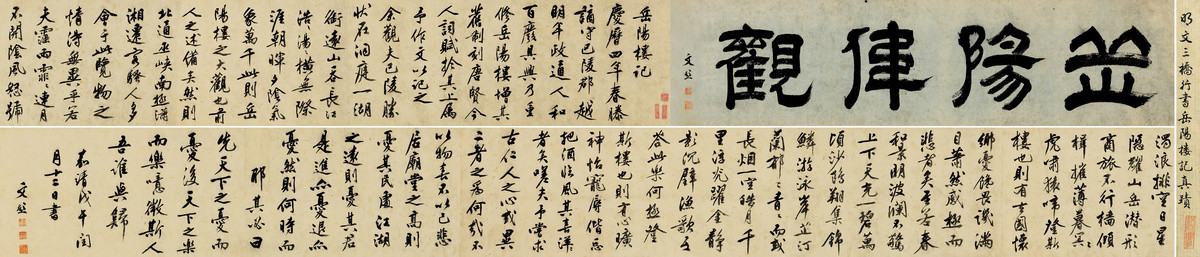 明文三橋行書岳陽樓記真蹟
岳陽偉觀
文彭
岳陽樓記
慶曆四年春滕
謫守巴陵郡越
明年政通人和
百廢具興乃重
修岳陽樓增其
舊制刻唐賢今
人詞賦於其上屬
予作文以記之
余觀夫巴陵勝
狀在洞庭一湖
銜遠山吞長江
浩〻湯〻橫無際
涯朝暉夕陰氣
象萬千此則岳
陽樓之大觀也前
人之述備矣然則
北通巫峽南極瀟
湘遷客騷人多
會于此覽物之
情得無異乎若
夫霪雨霏〻連月
不開陰風怒號
濁浪排空日星
隱耀山岳潛形
商旅不行檣傾
楫摧薄暮冥〻
虎嘯猿啼登斯
樓也則有去國懷
鄉憂讒畏譏滿
目蕭然感極而
悲者矣至若春
和景明波瀾不驚
上下天光一碧萬
頃沙鷗翔集錦
鱗游泳岸芷汀
蘭郁〻青〻而或
長煙一空皓月千
里浮光耀金靜
影沉璧漁歌互
答此樂何極登
斯樓也則有心曠
神怡寵辱偕忘
把酒臨風其喜洋〻
者矣嗟夫予嘗求
古仁人之心或異
二者之為何哉不
以物喜不以己悲
居廟堂之高則
憂其民處江湖
之遠則憂其君
是進亦憂退亦
憂然則何時而
耶其必曰
先天下之憂而
憂後天下之樂
而樂噫微斯人
吾誰與歸
嘉靖戊午閏
月十二日書
文彭